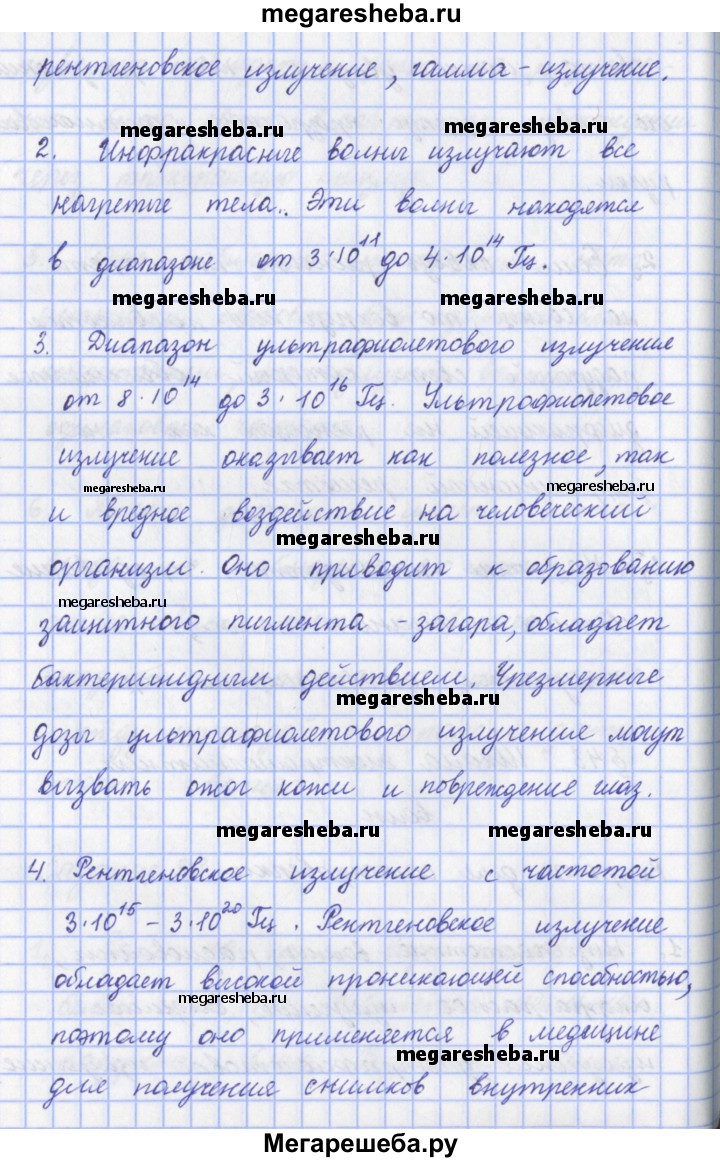 megaresheba.ru
рентгеновское излучение, гамма-излучение.
megaresheba.ru megaresheba.ru
2. Инфракрасные волны излучают все
нагретые тела.. Эти волны находятся
в диапазоне от 3·10¹¹ до 4·10¹⁴ Гц.
megaresheba.ru megaresheba.ru
3. Диапазон ультрафиолетового излучения
от 8·10¹⁴ до 3·10¹⁶ Гц. Ультрафиолетовое
излучение оказывает как полезное, так
megaresheba.ru megaresheba.ru
и вредное воздействие на человеческий
megaresheba.ru
организм. Оно приводит к образованию
megaresheba.ru
защитного пигмента - загара, обладает
бактерицидным действием. Чрезмерные
megaresheba.ru
дозы ультрафиолетового излучения могут
вызвать ожог кожи и повреждение глаз.
megaresheba.ru megaresheba.ru
4. Рентгеновское излучение с частотой
3·10¹⁵ - 3·10²⁰ Гц. Рентгеновское излучение
обладает высокой проникающей способностью,
megaresheba.ru
поэтому оно применяется в медицине
megaresheba.ru
для получения снимков внутренних
megaresheba.ru
Мегарешеба.ру